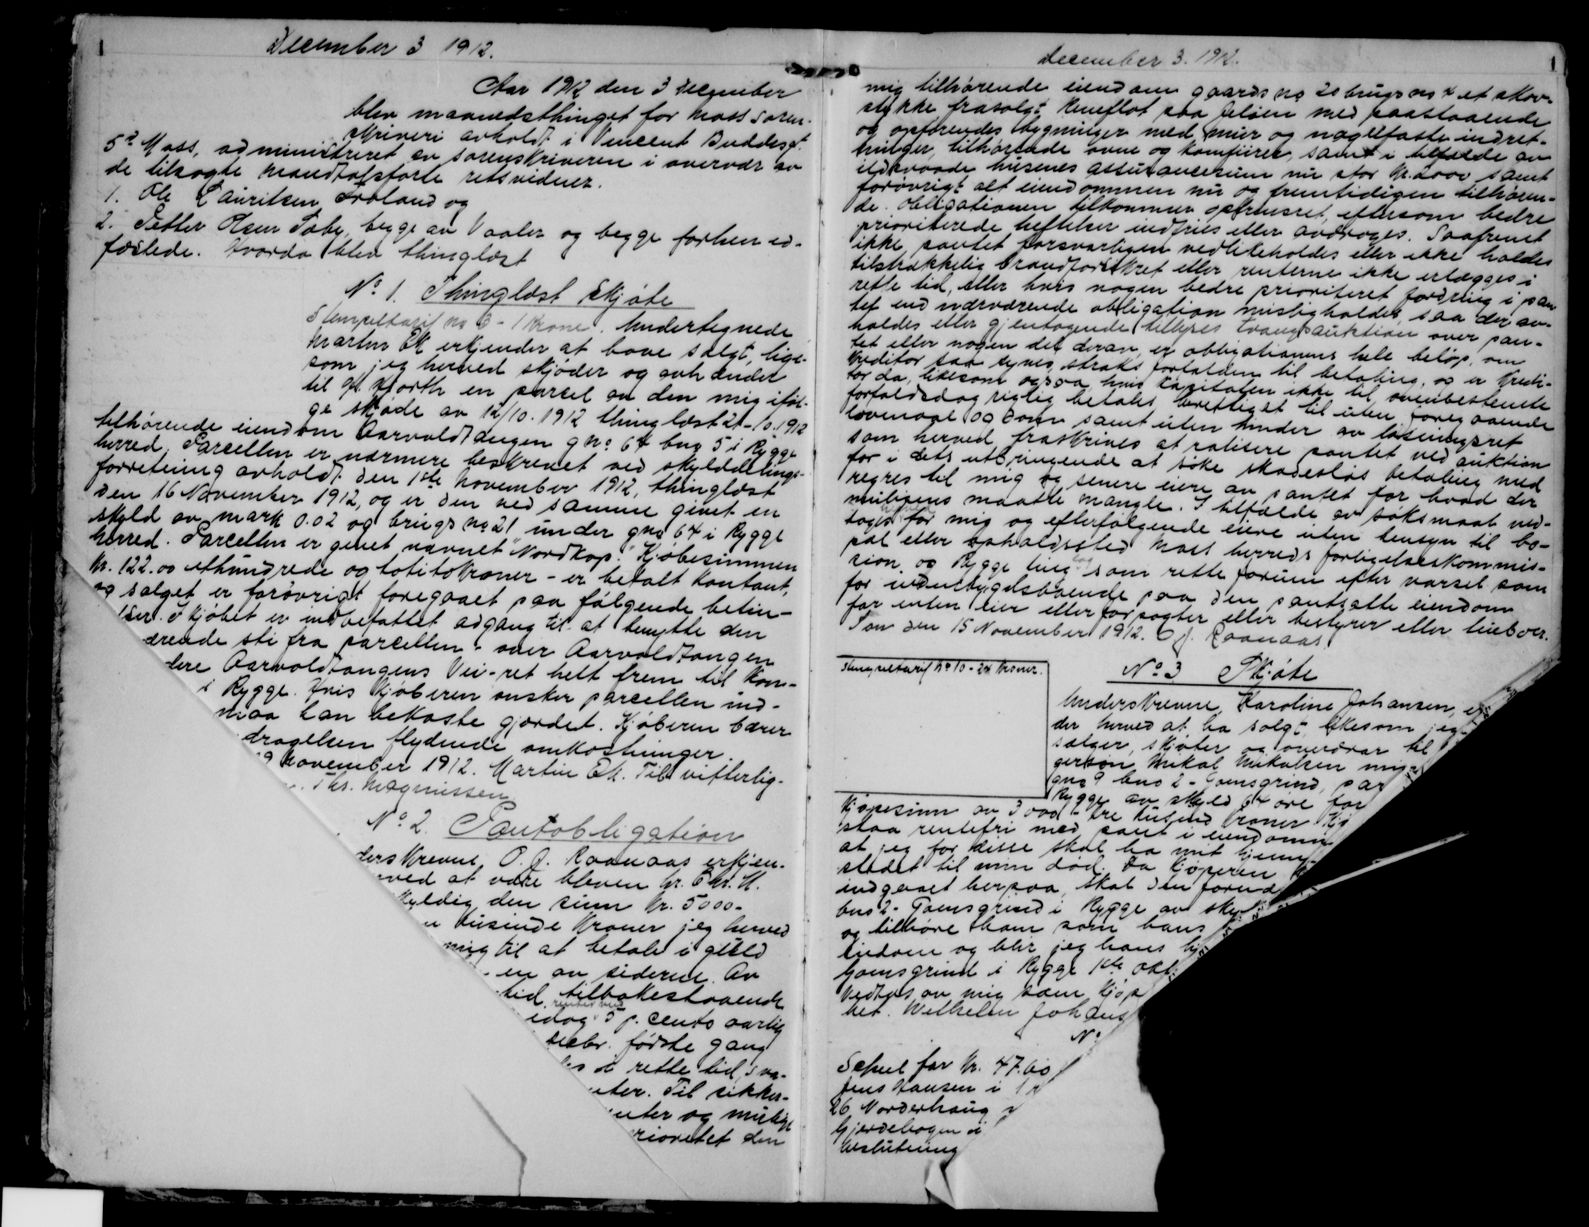 December 3 1912.
Aar 1912 den 3 december
blev maanedsthinget for Moss soren-
skriveri avholdt i Vincent Buddesgt.
5? Moss, administreret av sorenskriveren i overvær av
de tilsagte mandtalsførte retsvidner.
1. Ole Lauritsen Frøland og
2. Petter Olsen Tabe, begge av Vaaler og begge forhen ed-
fæstede. Hvorda blev thinglæst
No 1. Thinglæst Skjøte
Stempeltarif no 6 - 1 krone. Undertegnede
Martin Ek erkjender at have solgt, lige-
som jeg herved skjøder og avhænder
til Hjorth en parcel av den mig iføl-
ge skjøde av 12/10. 1912 thinglæst 21-10.1912
tilhørende eiendom Aarvoldtangen gno. 64 bno 5 i Rygge
herred. Parcellen er nærmere beskrevet ved skylddelings-
forretning avholdt den 1ste november 1912, thinglæst
den 16 November 1912, og er den ved samme givet en
skyld av mark 0.02 og brugs no 21 under gno 64 i Rygge
herred. Parcellen er givet navnet "Nordkap". Kjøbesummen
kr. 122.00 ethundrede og totito kroner - er betalt kontant,
og salget er forøvrigt foregaaet paa følgende betin-
elser. I kjøbet er indbefattet adgang til at benytte den
ærende sti fra parcellen over Aarvoldtangen
dere Aarvoldtangens Vei-ret helt frem til Kon-
i Rygge. Hvis kjøberen ønsker parcellen ind-
maa han bekoste gjærdet. Kjøberen bærer
dragelsen flydende omkostninger
29 november 1912. Martin Ek. Til vitterlig-
Ths. Magnussen
No 2. Pantobligation
derskrevne, O. J. Raanaas erkjen-
rved at være bleven hr. Chr. H.
skyldig den sum kr. 5000-
tusinde kroner jeg herved
mig til at betale i gjæld
en av siderne. Av
tid tilbakestaaende
idag 5 p. cents aarlig
decbr. første gang
i rette tid, sva-
nter. Til sikker-
nter og mulige
rioritet den
December 3. 1912.
mig tilhørende eiendom gaards no 20 brugs no 4 et skov-
stykke frasolgt Kneflot paa Jeløen med paastaaende
og opførendes bygninger med mur og nagelfaste indret-
ninger, tilhørende ovne og komfurer, samt i tilfælde av
ildsvaade husenes assurancesum nu stor kr. 2000 samt
forøvrigt alt eiendommen nu og fremtidigen tilhøren-
de. Obligationen tilkommer oprykningsret, eftersom bedre
prioriterede heftelser indfries eller avdrages. Saafremt
ikke pantet forsvarligen vedlikeholdes eller ikke holdes
tilstrækkelig brandforsikret eller renterne ikke erlægges i
rette tid, eller hvis nogen bedre prioriteret fordring i pan-
tet end nærværende obligation misligholdes saa der av-
holdes eller gjentagende tillyses tvangsauktion over pan-
tet eller nogen del derav, er obligationens hele beløp, om
kreditor saa synes, straks forfalden til betaling, og er kredi-
tor da, likesom ogsaa hvis kapitalen ikke til ovenbestemte
forfaldsdag rigtig betales berettiget til uten foregaaende
lovmaal og dom samt uten hinder av løsningsret
som herved fraskrives at realisere pantet ved auktion
for i dets utbringende at søke skadesløs betaling med
regres til mig og senere eiere av pantet for hvad der
muligens maatte mangle. I tilfælde av søksmaal ved-
tages herved for mig og efterfølgende eiere uten hensyn til bo-
pæl eller opholdssted Moss herreds forligelseskommis-
sion og Rygge ting som rette forum efter varsel som
for indenbygdsboende paa den pantsatte eiendom
for enten eier eller forpagter eller bestyrer eller leieboer.
Son den 15 November 1912. O. J. Raanaas
Stempeltarif no 10 - 24 kroner.
No 3 Skjøte
Underskrevne, Karoline Johansen, er
der herved at ha solgt likesom jeg
sælger, skjøter og overdrar til
gerson Mikal Mikalsen mig
gno 9 bno 2 - Gamsgrind, par
Rygge av skyld 64 øre for
kjøpesum av 3000 - tre tusind kroner Kjø
staa rentefri med pant i eiendomm
at jeg for disse skal ha mit hjem
stedet til min død. Da kjøperen
indgaaet herpaa, skal den forned
bno 2 - Gamsgrind i Rygge av sky
og tilhøre ham som hans
eiedom og blir jeg hans hj
Gamsgrind i Rygge 1ste okt.
Vedtas av mig som kjøp
het. Wilhelm Johans
No
Schul for kr. 47.60
Jens Hansen i
26 Norderhaug
Gjerdebogen i
beslutning